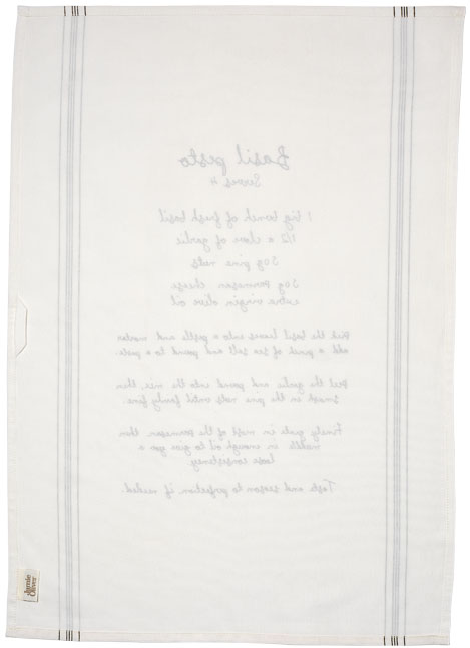 Basil pesto
Serves 4
1 big bunch of fresh basil
1/2 a clove of garlic
30g pine nuts
30g parmesan cheese
extra virgin olive oil
Pick the basil leaves into a pestle and mortar
add a pinch of sea salt and pound to a paste.
Peel the garlic and pound into the mix, then
smash in the pine nuts until fairly fine.
Finely grate in most of the parmesan, then
muddle in enough oil to give you a
loose consistency.
Taste and season to perfection, if needed.
Jamie
Oliver